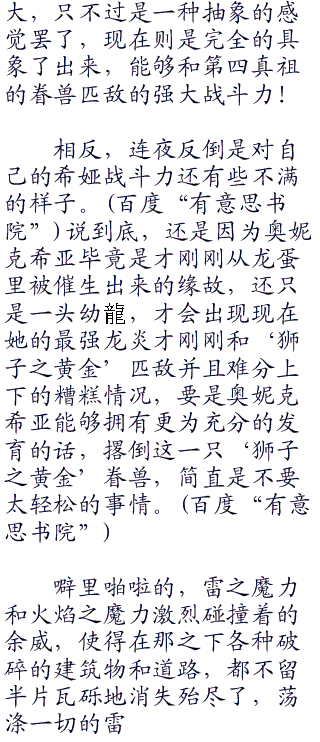 大，只不过是一种抽象的感
觉罢了，现在则是完全的具
象了出来，能够和第四真祖
的眷兽匹敌的强大战斗力！
相反，连夜反倒是对自
己的希娅战斗力还有些不满
的样子。（百度“有意思书
院”）说到底，还是因为奥妮
克希亚毕竟是才刚刚从龙蛋
里被催生出来的缘故，还只
是一头幼龍，才会出现现在
她的最强龙炎才刚刚和‘狮
子之黄金’匹敌并且难分上
下的糟糕情况，要是奥妮克
希亚能够拥有更为充分的发
育的话，撂倒这一只‘狮子
之黄金’眷兽，简直是不要
太轻松的事情。（百度“有意
思书院”）
噼里啪啦的，雷之魔力
和火焰之魔力激烈碰撞着的
余威，使得在那之下各种破
碎的建筑物和道路，都不留
半片瓦砾地消失殆尽了，荡
涤一切的雷